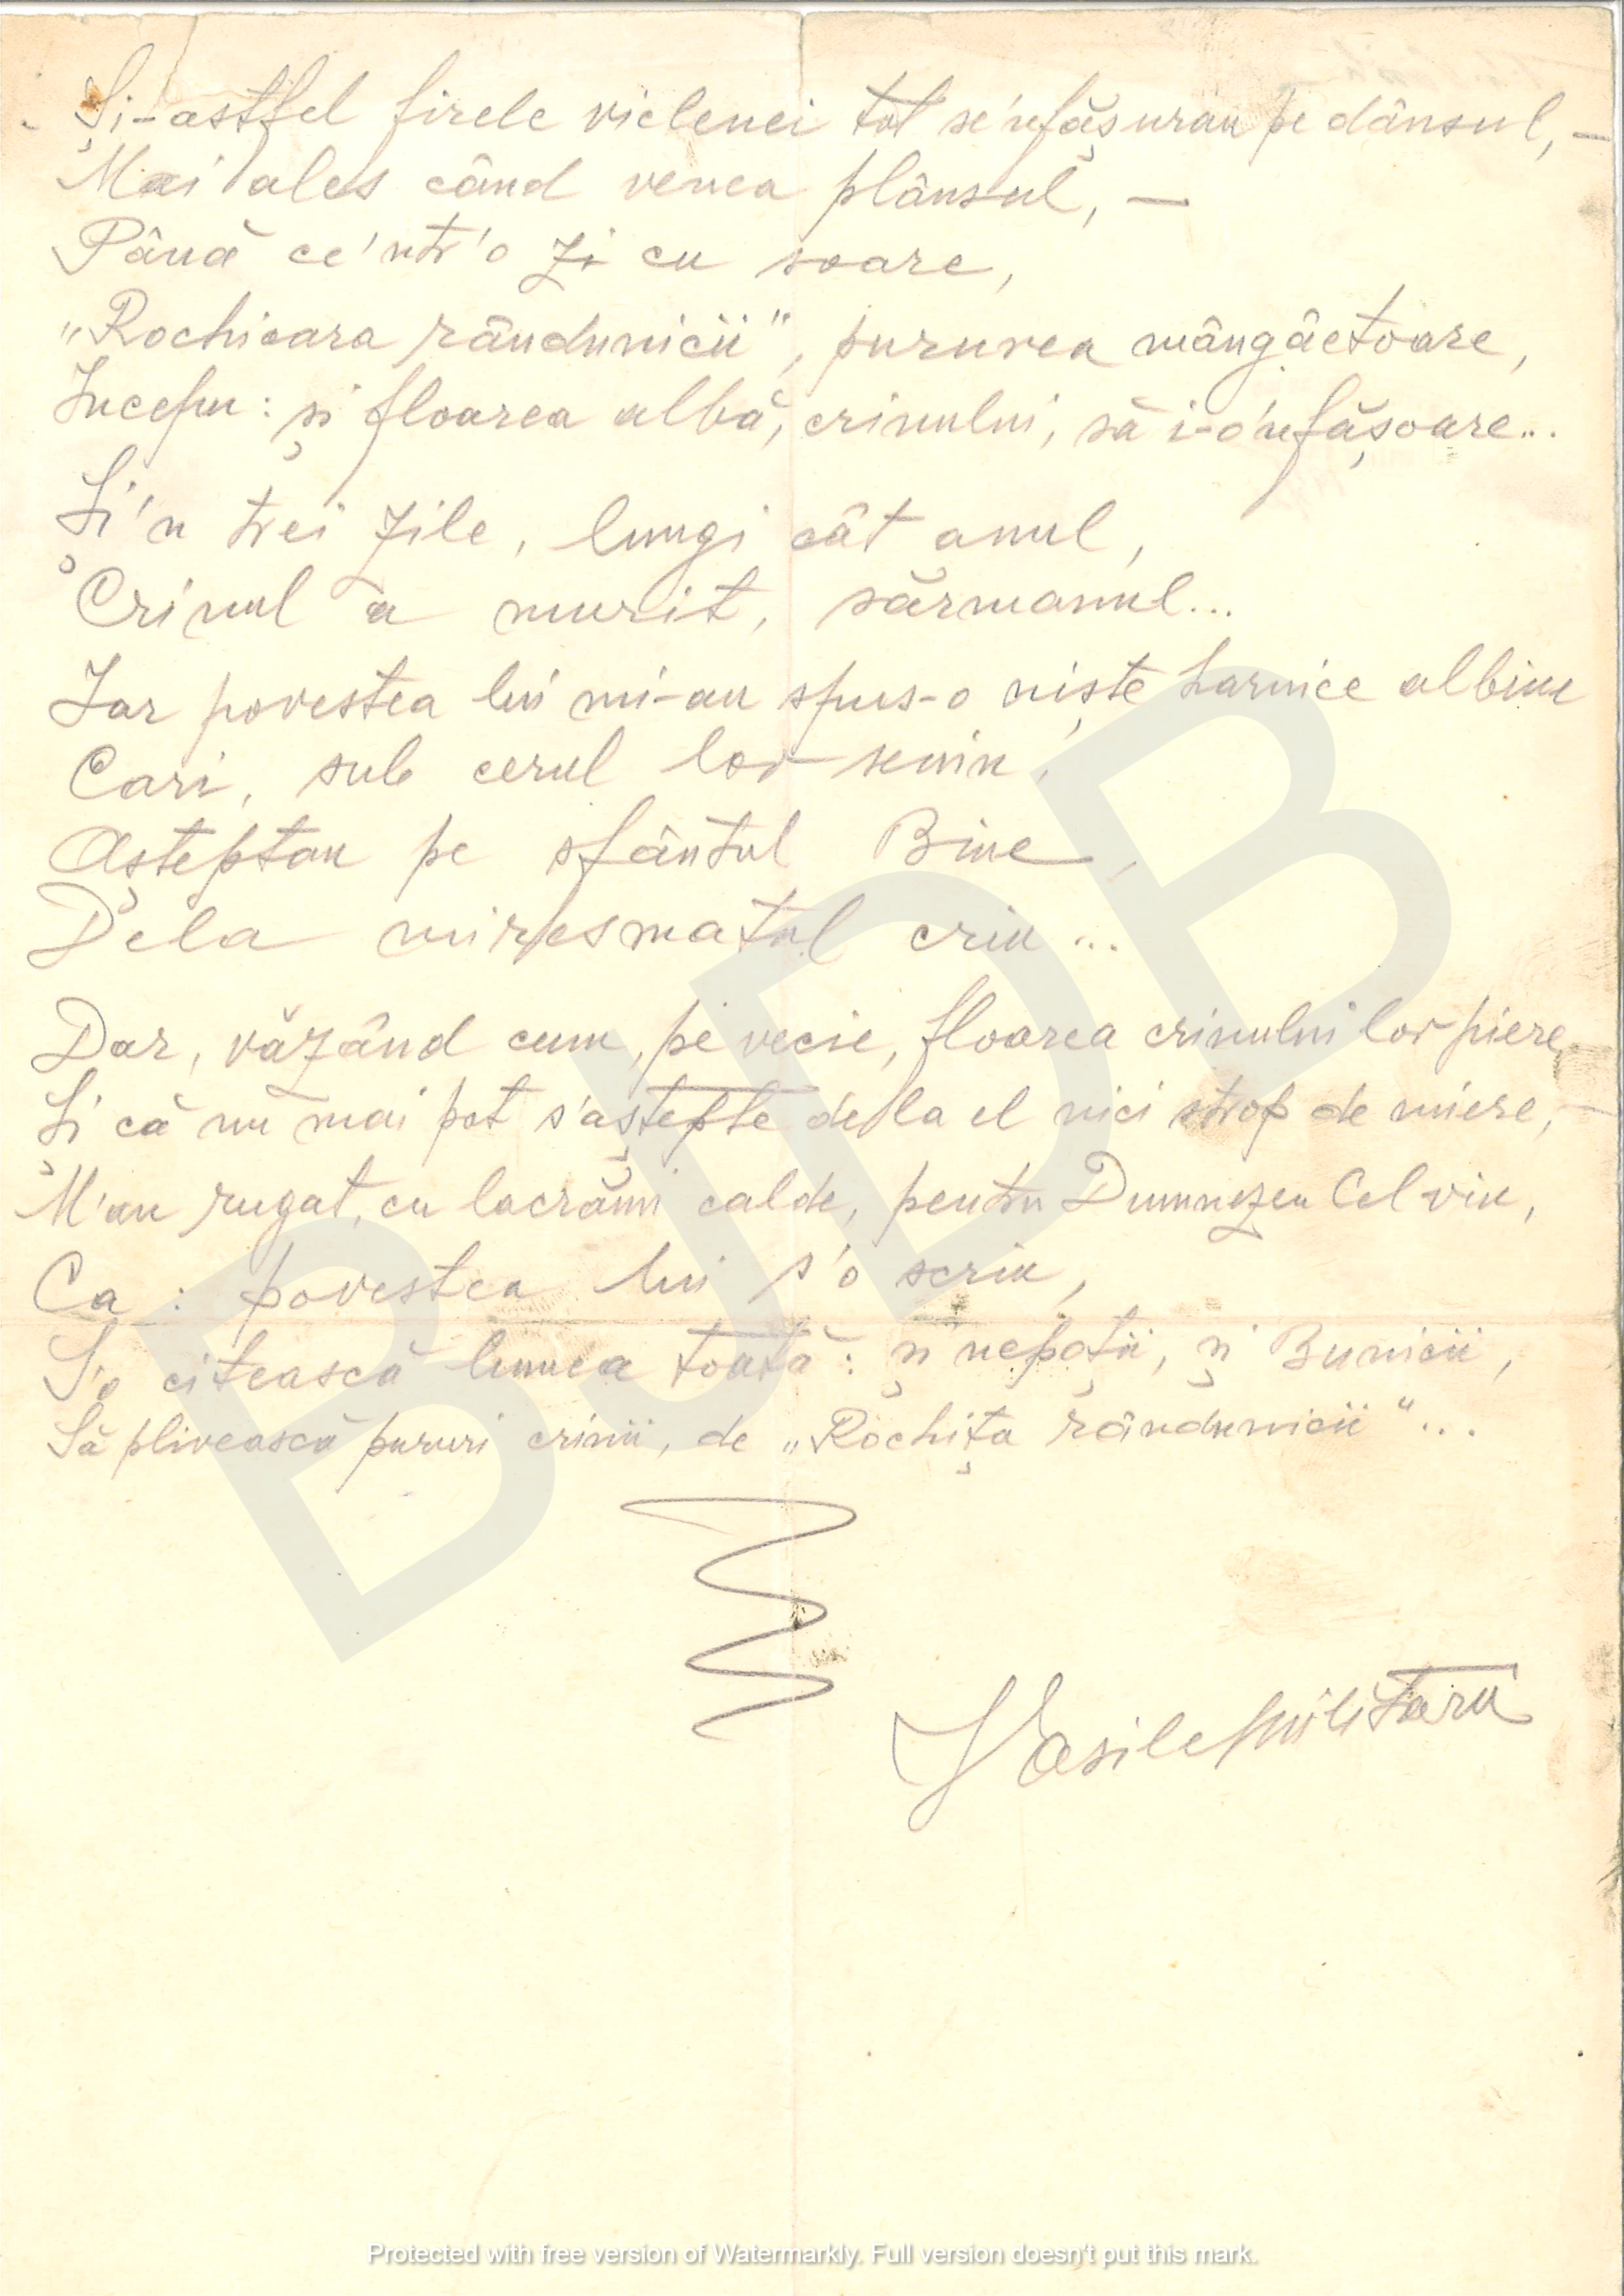 Și-astfel firele vicleniei tot se'nfășurau pe dânsul, —
Mai ales când venea plânsul, —
Până ce'ntr'o zi cu soare,
„Rochioara rândunicii”, pururea mângâetoare,
Începu: și floarea albă, crinului, să i-o'nfășoare...
Și'n trei zile, lungi cât anul,
Crinul a murit, sărmanul...
Iar povestea lui mi-au spus-o niște harnice albine
Cari, sub cerul lor senin,
Așteptau pe sfântul Bine,
Dela miresmatul crin...
Dar, văzând cum, pe vecie, floarea crinului lor piere,
Și că nu mai pot s'aștepte dela el nici strop de miere, —
M'au rugat, cu lacrămi calde, pentru Dumnezeu Cel viu,
Ca: povestea lui s'o scriu,
S'o citească lumea toată: și nepoții, și Bunicii,
Să plivească pururi crinii, de „Rochița rândunicii”...
Vasile Militaru
BJDB
Protected with free version of Watermarkly. Full version doesn't put this mark.